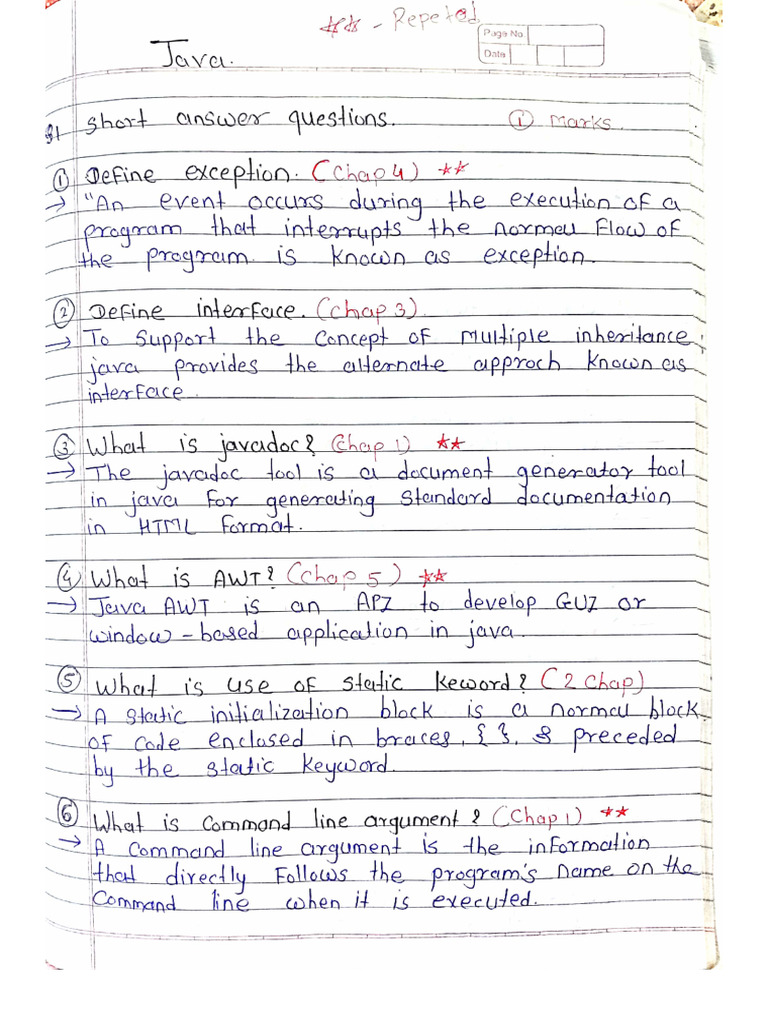 ** - Repeted
Page No.
Date
Java.
Short answer questions. ① Marks.
① Define exception. (Chap 4) **
→ "An event occurs during the execution of a
program that interrupts the normal flow of
the program is known as exception.
② Define interface. (Chap 3)
→ To support the concept of multiple inheritance,
java provides the alternate approch known as
interface.
③ What is javadoc? (Chap 1) **
→ The javadoc tool is a document generator tool
in java for generating standard documentation
in HTML format.
④ What is AWT? (Chap 5) **
→ Java AWT is an API to develop GUI or
window-based application in java.
⑤ What is use of static keword? (2 Chap)
→ A static initialization block is a normal block
of code enclosed in braces, { }, & preceded
by the static keyword.
⑥ What is Command line argument? (Chap 1) **
→ A Command line argument is the information
that directly follows the program's name on the
Command line when it is executed.